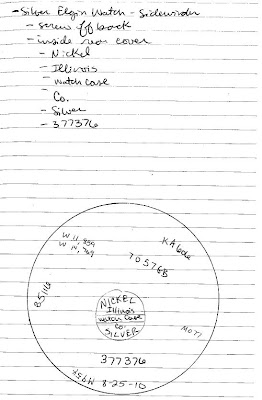 - Silver Elgin Watch - Sidewinder
- screw off back
- inside rear cover
- Nickel
- Illinois
- watch case
- Co.
- Silver
- 377376
W 11,959
W N, 769
KABode
70576B
85116
NICKEL
Illinois
watch case
Co.
SILVER
M077
377376
M957
8-25-10